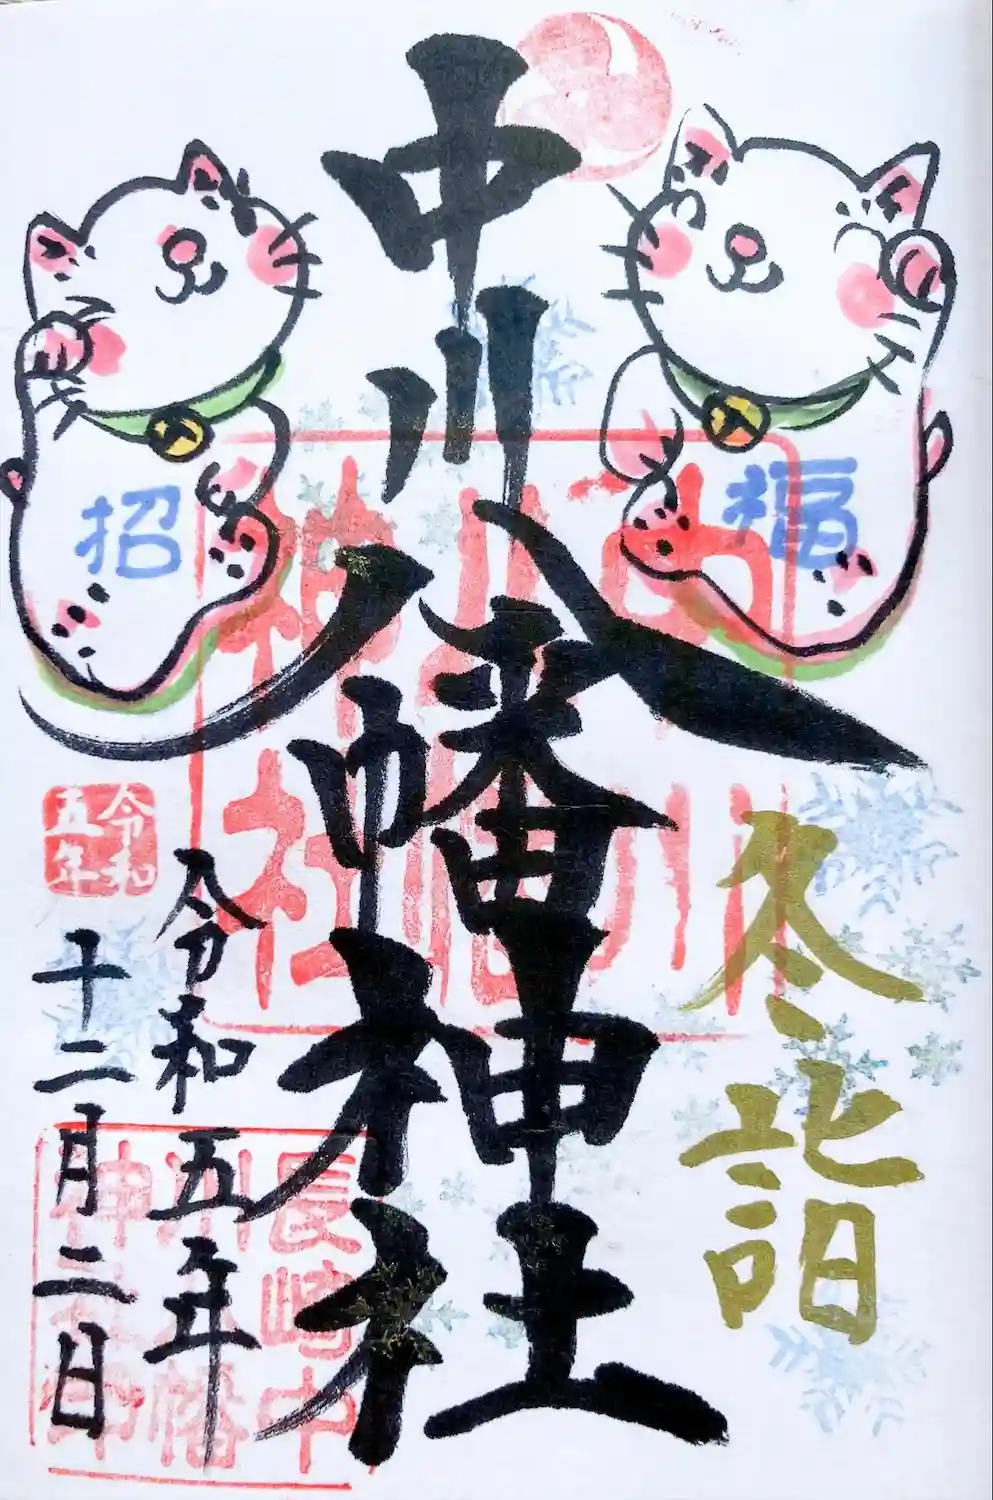 冬詣
中川八幡神社
福
招
令和五年
十二月二日
令和
五年
中川
八幡
神社
長崎中
川八幡
神社之印